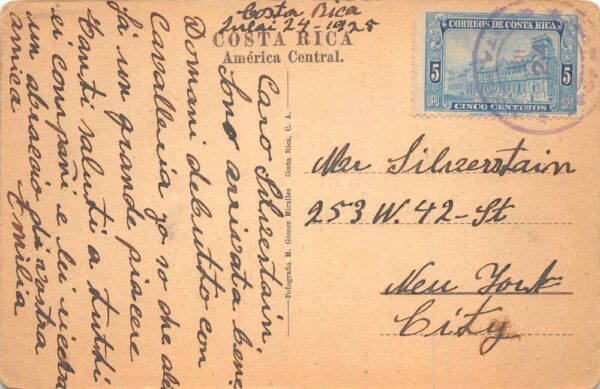 Costa Rica
Julai 24-1925
COSTA RICA
América Central.
Caro Silverstain,
Sono arrivata bene
Domani debutto con
Cavalleria jo so che da
Sà un grande piacere
Tanti saluti a tutti
ei compañi e lei riceva
un abraccio di vostra
amica Emilia
Fotografía M. Gómez Miralles Costa Rica, C. A.
CORREOS DE COSTA RICA
5 5
UPU 1923
CINCO CENTIMOS
Mr Silverstain
253 W. 42-St
New York
City